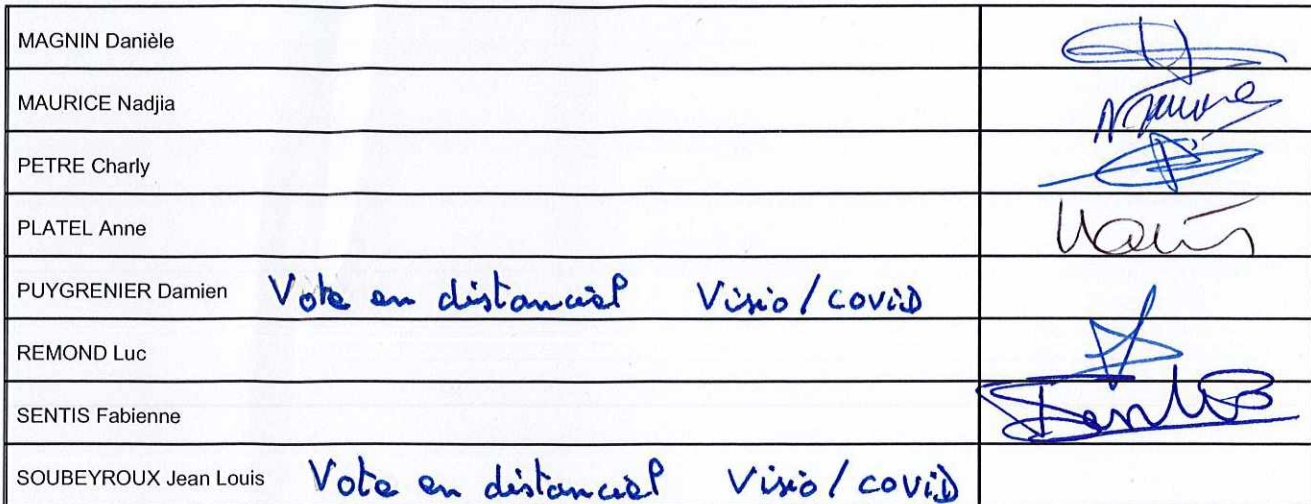 MAGNIN Danièle
MAURICE Nadjia
PETRE Charly
PLATEL Anne
PUYGRENIER Damien Vote en distanciel Visio / covid
REMOND Luc
SENTIS Fabienne
SOUBEYROUX Jean Louis Vote en distanciel Visio / covid